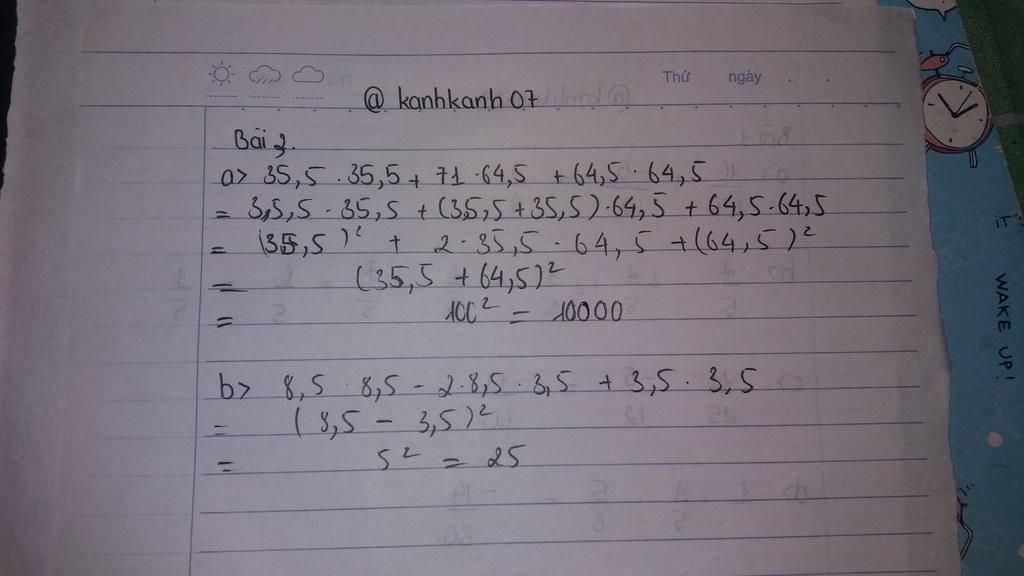 Thứ ngày
@ kanhkanh07
Bài 2.
a> 35,5 · 35,5 + 71 · 64,5 + 64,5 · 64,5
= 35,5 · 35,5 + (35,5 + 35,5) · 64,5 + 64,5 · 64,5
= (35,5)² + 2 · 35,5 · 64,5 + (64,5)²
= (35,5 + 64,5)²
= 100² = 10000
b> 8,5 · 8,5 - 2 · 8,5 · 3,5 + 3,5 · 3,5
= (8,5 - 3,5)²
= 5² = 25
IT'
WAKE UP!